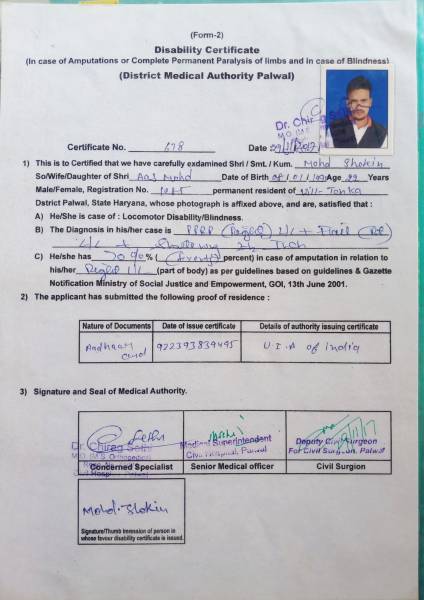 (Form-2)
Disability Certificate
(In case of Amputations or Complete Permanent Paralysis of limbs and in case of Blindness)
(District Medical Authority Palwal)
Dr. Chirag
Certificate No. 678 Date
1) This is to Certified that we have carefully exdamined Shri / Smt. / Kum. Mohd Shokin
So/Wife/Daughter of Shri Aas Mohd Date of Birth Age 22 Years
Male/Female, Registration No. permanent resident of Vill- Tonka
Dstrict Palwal, State Haryana, whose photograph is affixed above, and are, satisfied that :
A) He/She is case of : Locomotor Disability/Blindness.
B) The Diagnosis in his/her case is PPRP (Right)
C) He/she has 70 %( percent) in case of amputation in relation to
his/her Right (part of body) as per guidelines based on guidelines & Gazette
Notification Ministry of Social Justice and Empowerment, GOI, 13th June 2001.
2) The applicant has submitted the following proof of residence :
Nature of Documents Date of Issue certificate Details of authority issuing certificate
Aadhaar Card 922393839495 U.I.A of India
3) Signature and Seal of Medical Authority.
Dr. Chirag
Medical Superintendent Deputy Civil Surgeon
Civil Hospital, Palwal For Civil Surgeon, Palwal
Concerned Specialist Senior Medical officer Civil Surgion
Mohd. Shokin
Signature/Thumb Imression of person in
whose favour disability certificate is issued.